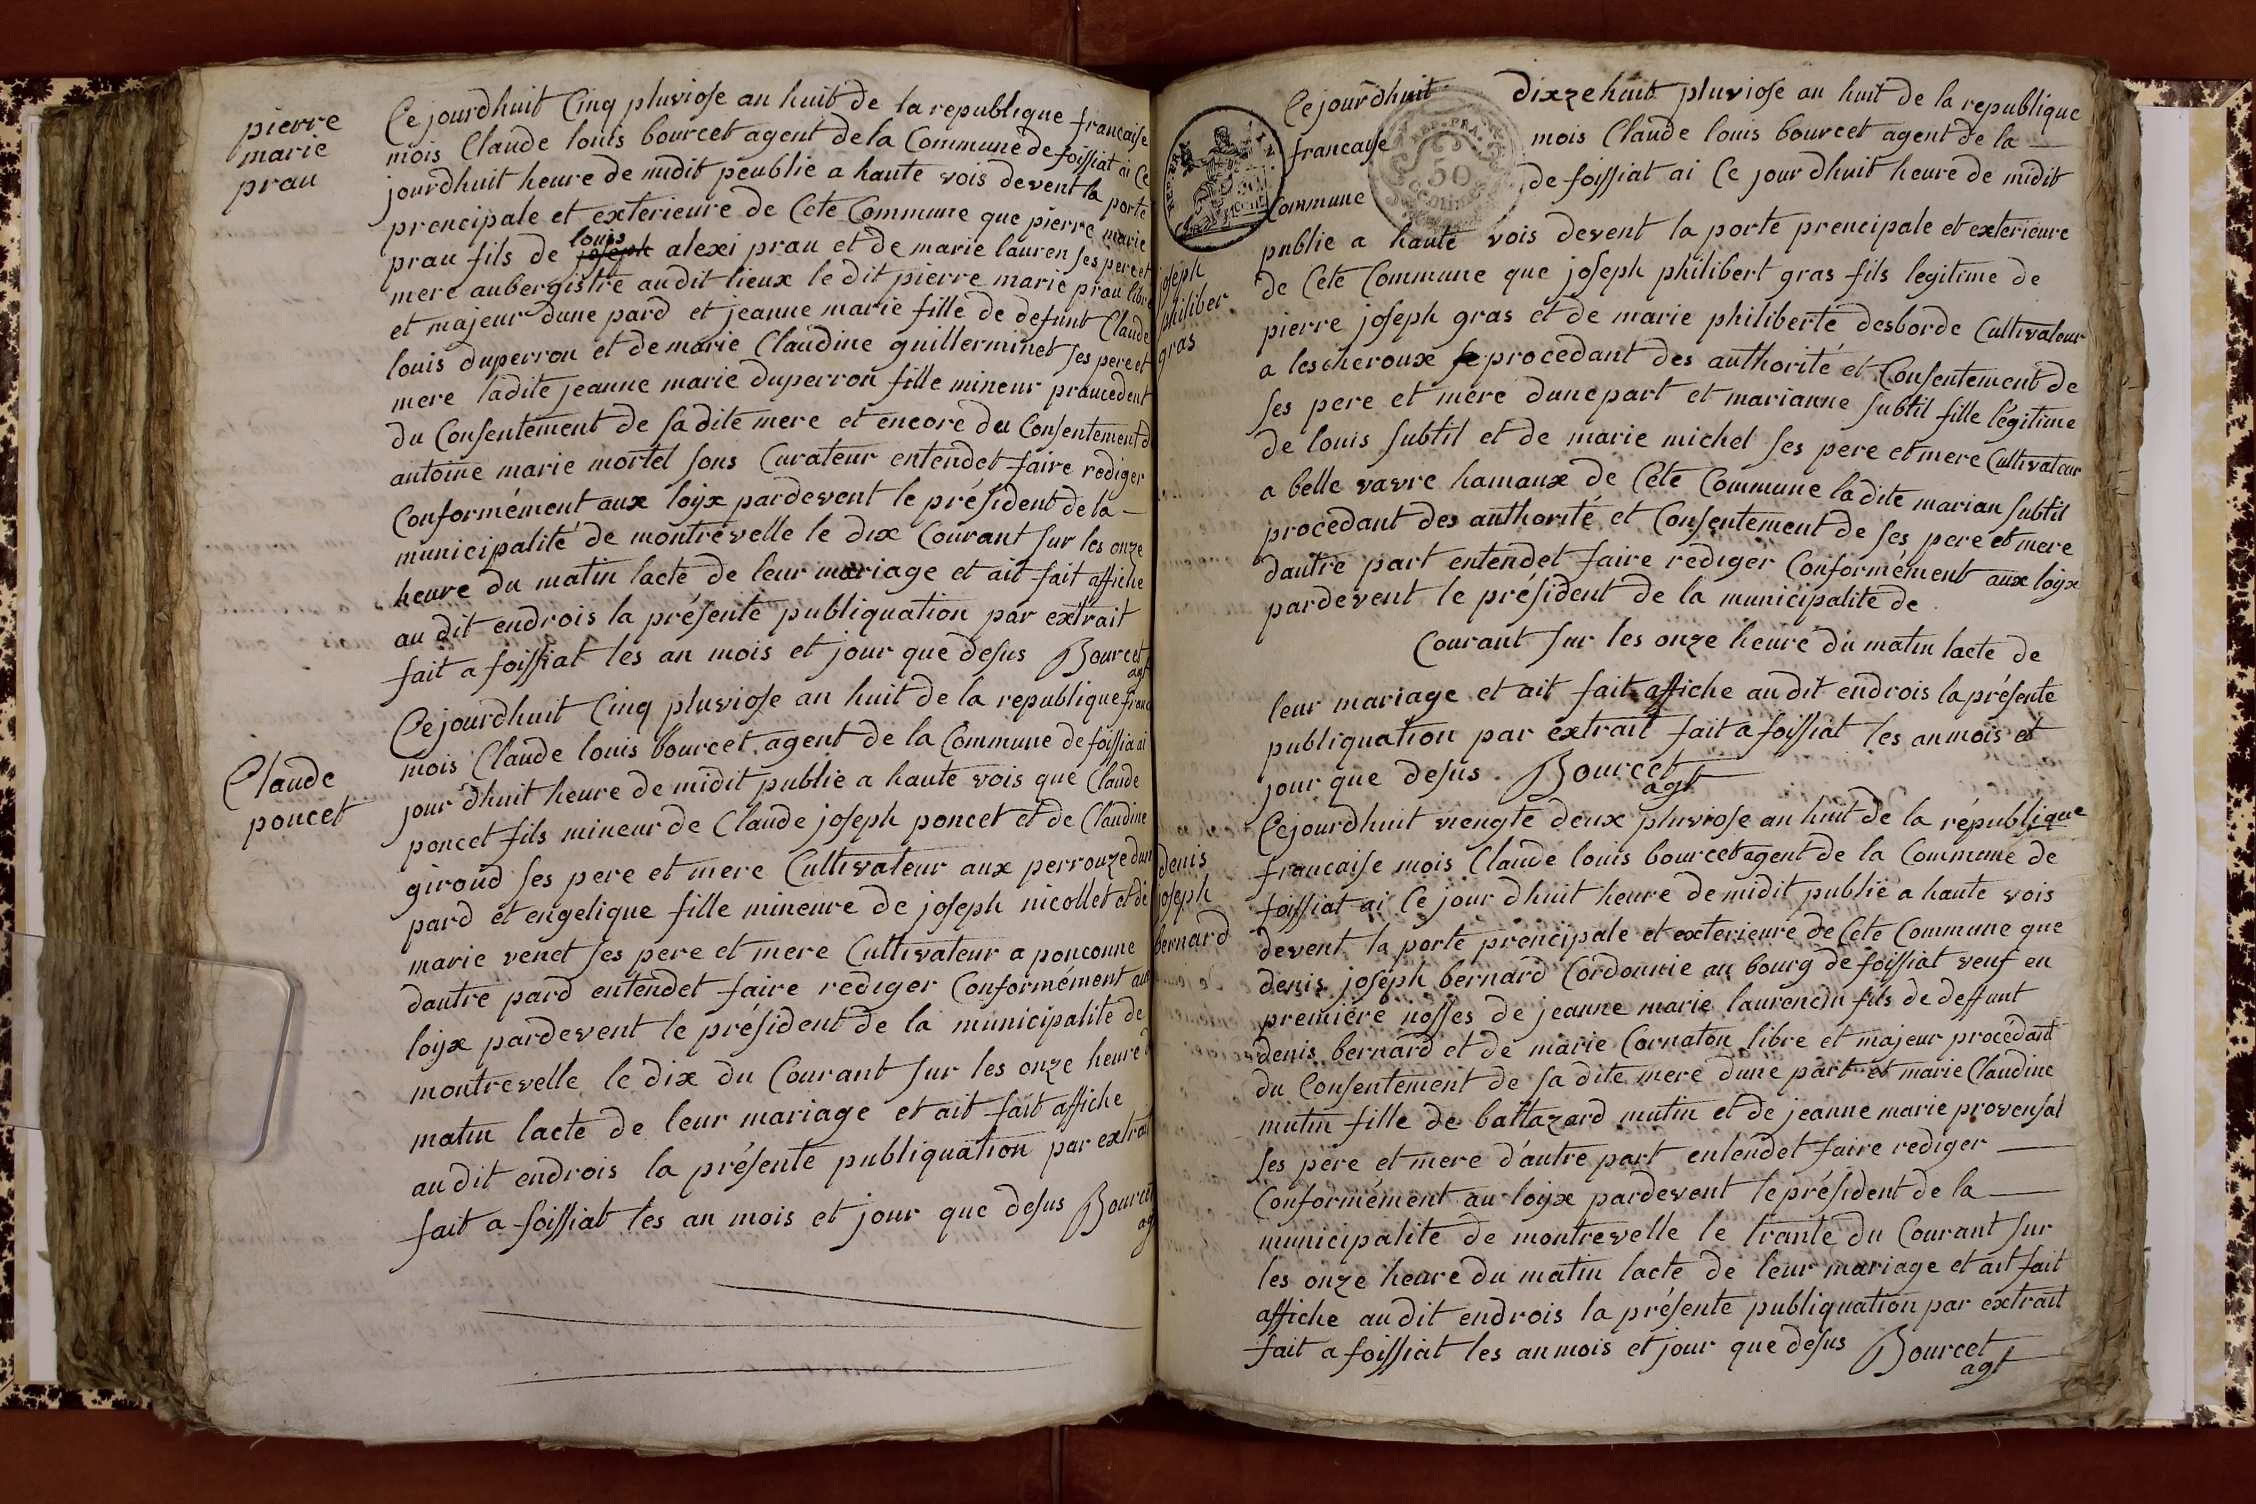 pierre
marie
prau
Ce jourdhuit Cinq pluviose an huit de la republique francaise
mois Claude louis bourcet agent de la Commune de foissiat ai Ce
jourdhuit heure de midit peublie a haute vois devent la porte
prencipale et exterieure de Cete Commune que pierre marie
prau fils de joseph louis alexi prau et de marie lauren ses pere et
mere aubergistre audit lieux le dit pierre marie prau libre
et majeur dune pard et jeanne marie fille de defunt Claude
louis duperron et de marie Claudine guillerminet ses pere et
mere ladite jeanne marie duperron fille mineur praucedent
du Consentement de sadite mere et encore du Consentement d
antoine marie mortel sons Curateur entendet faire rediger
Conformément aux loijx pardevent le président de la
municipalité de montrevelle le dix Courant sur les onze
heure du matin lacte de leur mariage et ait fait affiche
au dit endrois la présente publiquation par extrait
fait a foissiat les an mois et jour que desus Bourcet
agt
Claude
poncet
Ce jourdhuit Cinq pluviose an huit de la republique franc
mois Claude louis bourcet agent de la Commune de foissia ai
jour dhuit heure de midit publie a haute vois que Claude
poncet fils mineur de Claude joseph poncet et de Claudine
giroud ses pere et mere Cultivateur aux perrouze dun
pard et engelique fille mineure de joseph nicollet et de
marie venet ses pere et mere Cultivateur a ponconne
dautre pard entendet faire rediger Conformément aux
loijx pardevent le président de la municipalite de
montrevelle le dix du Courant sur les onze heure d
matin lacte de leur mariage et ait fait affiche
au dit endrois la présente publiquation par extrait
fait a foissiat les an mois et jour que desus Bourcet
agt
REP. FRA.
50
centimes
joseph
philiber
gras
Ce jourdhuit dixzehuit pluviose an huit de la republique
francaise mois Claude louis bourcet agent de la
Commune de foissiat ai Ce jour dhuit heure de midit
publie a haute vois devent la porte prencipale et exterieure
de Cete Commune que joseph philibert gras fils legitime de
pierre joseph gras et de marie philiberte desborde Cultivateur
a lescheroux procedant des authorité et Consentement de
ses pere et mere dune part et marianne subtil fille légitime
de louis subtil et de marie michel ses pere et mere Cultivateur
a belle vavre hamaux de Cete Commune ladite marian subtil
procedant des authorité et Consentement de ses pere et mere
dautre part entendet faire rediger Conformément aux loijx
pardevent le président de la municipalite de
Courant sur les onze heure du matin lacte de
leur mariage et ait fait affiche au dit endrois la présente
publiquation par extrait fait a foissiat les an mois et
jour que desus. Bourcet
agt
denis
joseph
bernard
Ce jourdhuit viengte deux pluviose an huit de la république
francaise mois Claude louis bourcet agent de la Commune de
foissiat ai Ce jour dhuit heure de midit publie a haute vois
devent la porte prencipale et exterieure de Cete Commune que
denis joseph bernard Cordonnie au bourg de foissiat veuf en
première nosses de jeanne marie laurencin fils de deffunt
denis bernard et de marie Cornaton libre et majeur procédant
du Consentement de sa dite mere dune part et marie Claudine
mutin fille de baltazard mutin et de jeanne marie provensal
ses pere et mere d'autre part entendet faire rediger
Conformément au loijx pardevent le président de la
municipalite de montrevelle le trante du Courant sur
les onze heure du matin lacte de leur mariage et ait fait
affiche au dit endrois la présente publiquation par extrait
fait a foissiat les an mois et jour que desus Bourcet
agt